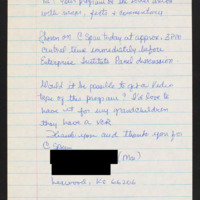 be. Each program be the order listed
with songs, facts & commentary
Shown on C Span today at approx. 3PM
central time immediately before
Enterprise Institute Panel discussion
Would it be possible to get a video
tape of this program? I'd love to
have it for my grandchildren
they have a VCR
Thank you and thank you for
C. Span
(Ms)
Leawood, KS 66206